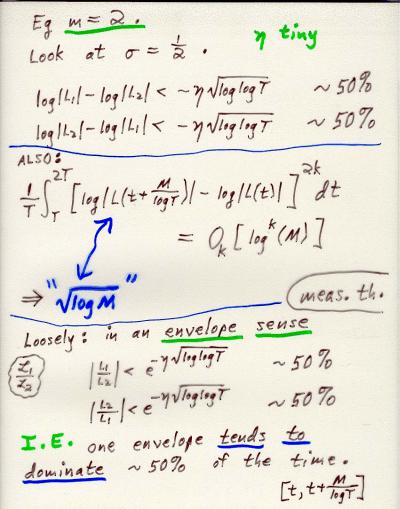 Eg m = 2.
η tiny
Look at σ = 1/2.
log|L₁| - log|L₂| < -η√(log log T) ~ 50%
log|L₂| - log|L₁| < -η√(log log T) ~ 50%
ALSO:
1/T ∫_T^{2T} [log|L(t + M/log T)| - log|L(t)|]^{2k} dt
= O_k [log^k (M)]
⇒ "√(log M)"
meas. th.
Loosely: in an envelope sense
L₁/L₂
|L₁/L₂| < e^{-η√(log log T)} ~ 50%
|L₂/L₁| < e^{-η√(log log T)} ~ 50%
I.E. one envelope tends to
dominate ~ 50% of the time.
[t, t + M/log T]